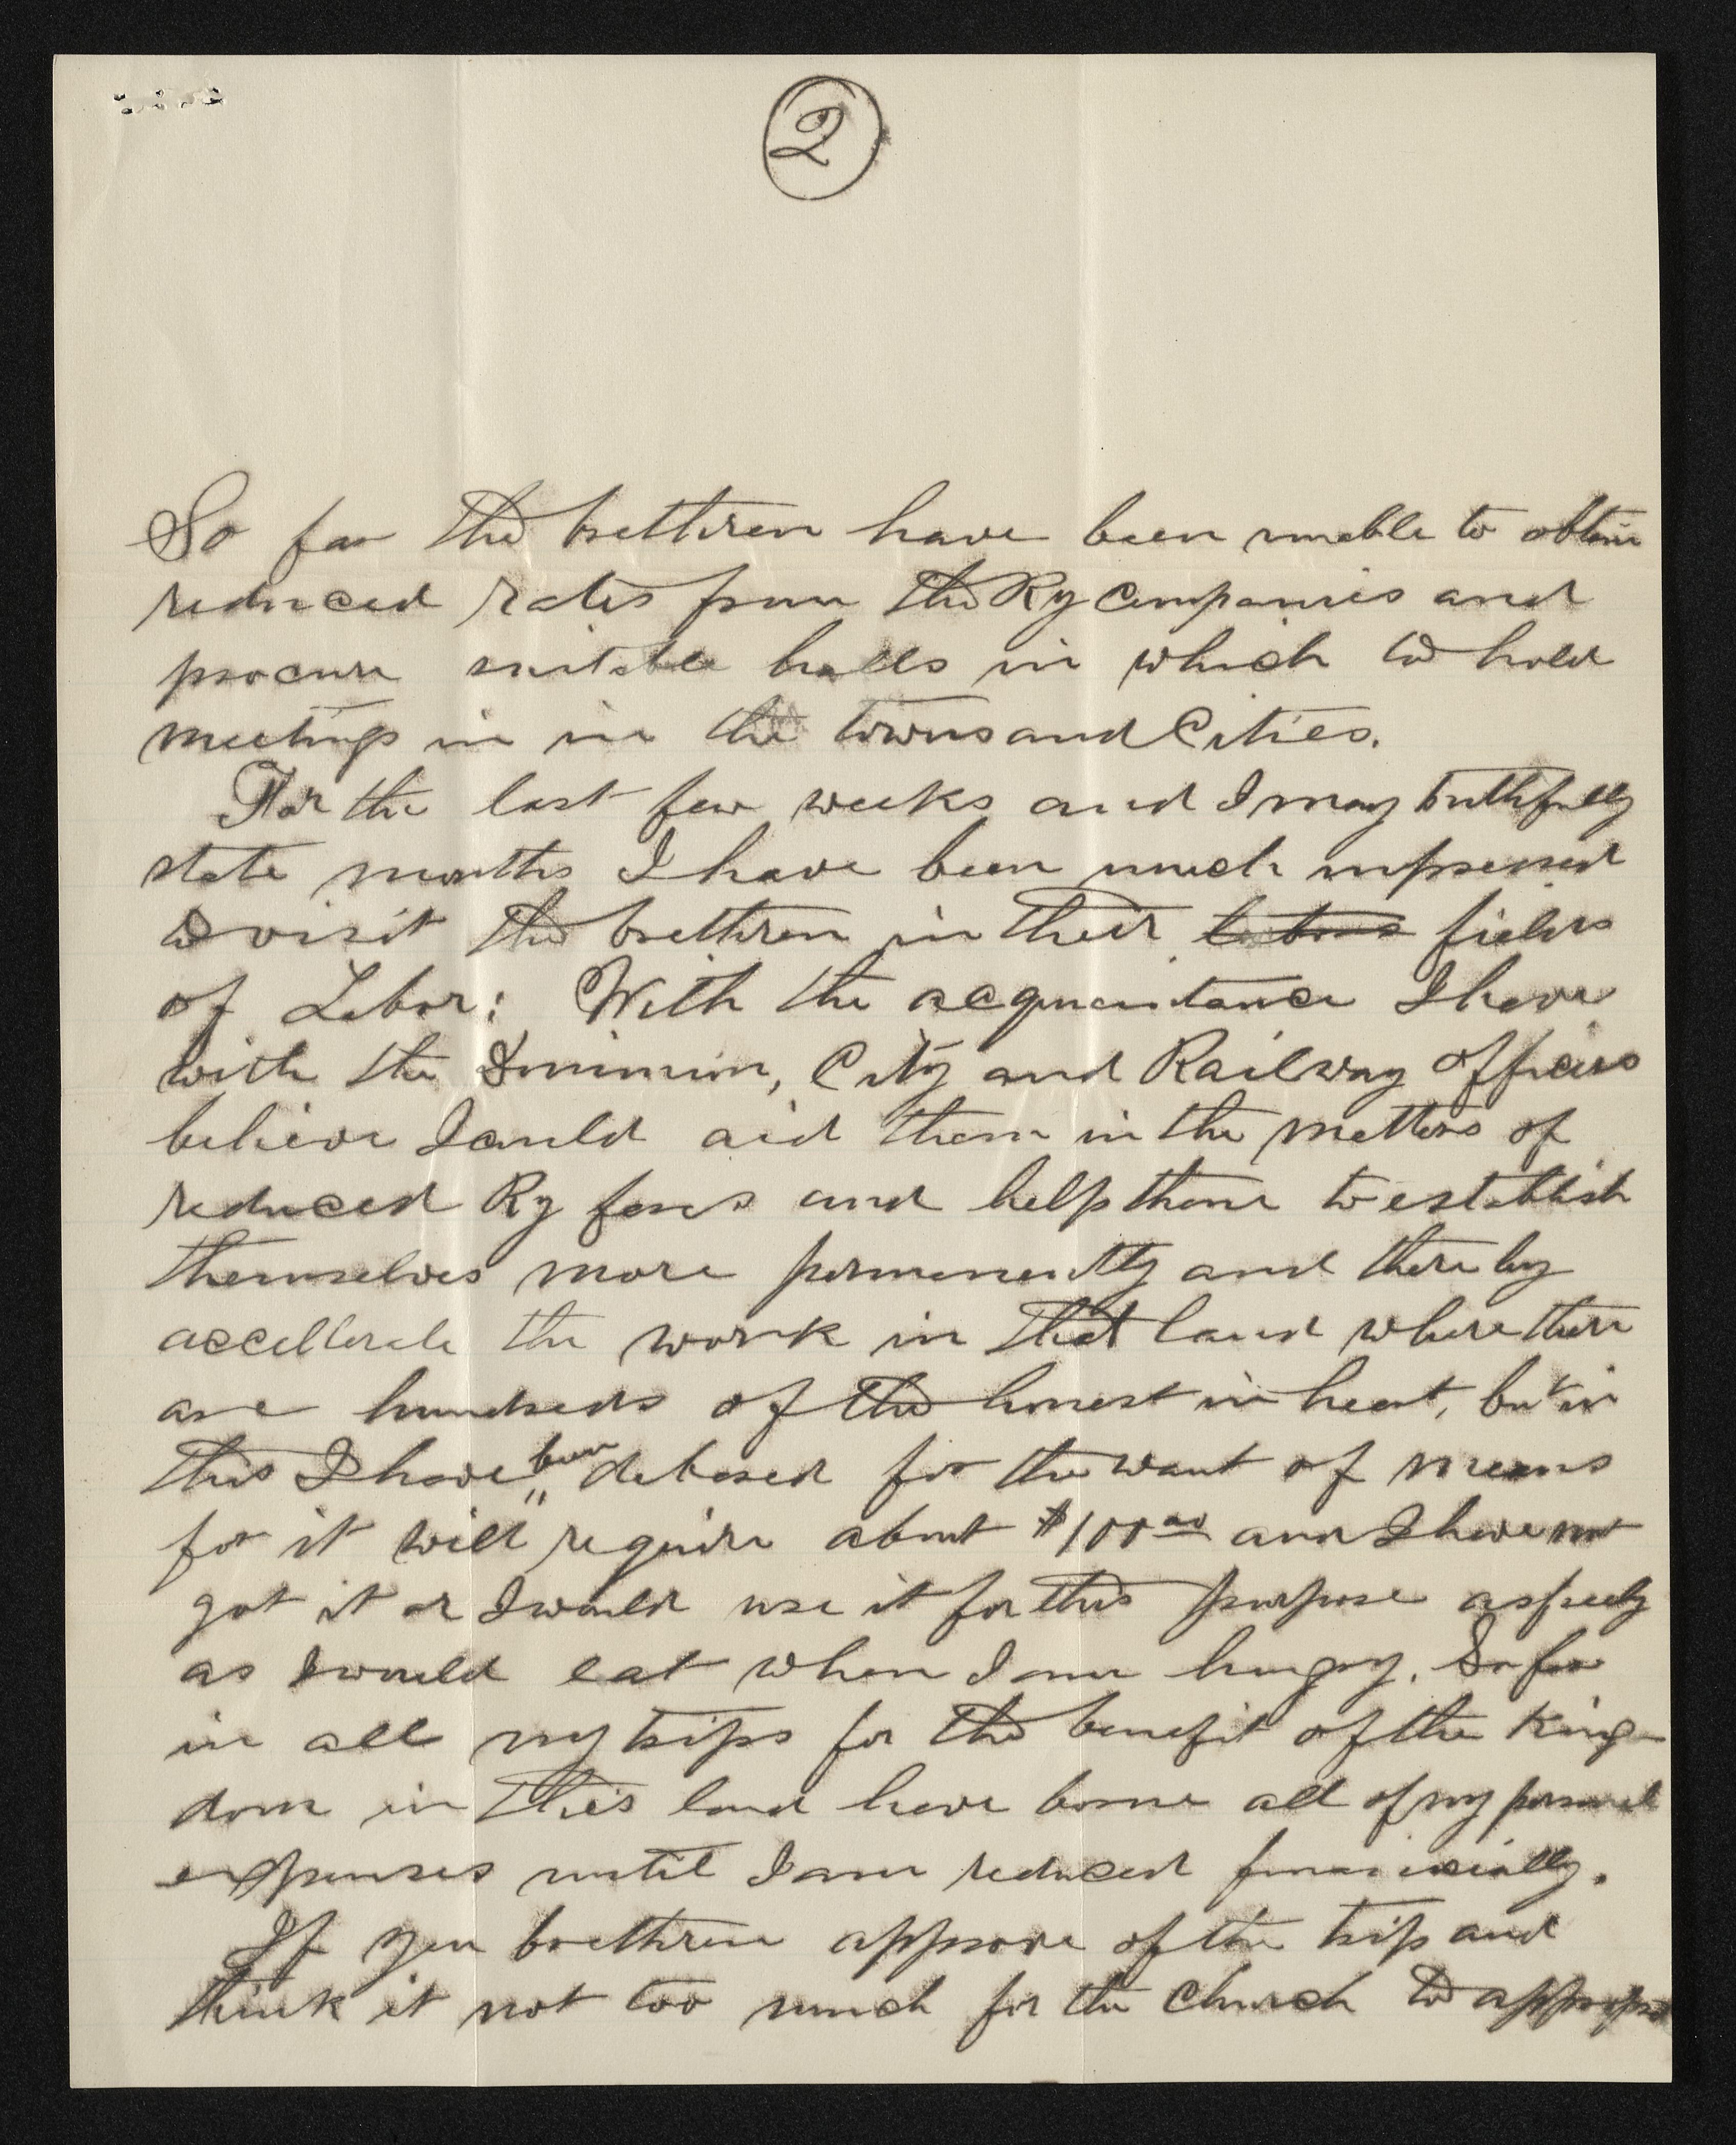 2
So far the brethren have been unable to obtain
reduced rates from the Ry Companies and
procure suitable halls in which to hold
meetings in in the towns and Cities.
For the last few weeks and I may truthfully
state months I have been much impressed
to visit the brethren in their labors fields
of Labor; With the acquaintance I have
with the Dominion, City and Railway Officers
believe I could aid them in the matters of
reduced Ry fares and help them to establish
themselves more permanently and there by
accellerate the work in that land where there
are hundreds of the honest in heart, but in
this I have been debased for the want of means
for it will require about $100.00 and I have not
got it or I would use it for this purpose as freely
as I would eat when I am hungry. So far
in all my trips for the benefit of the King-
dom in this land have borne all of my personal
expenses until I am reduced financially.
If you brethren approve of the trip and
think it not too much for the Church to appropri